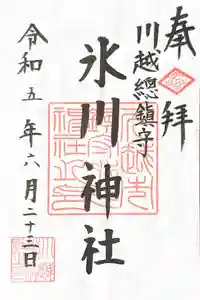 奉拝
川越總鎮守
氷川神社
令和五年六月二十三日